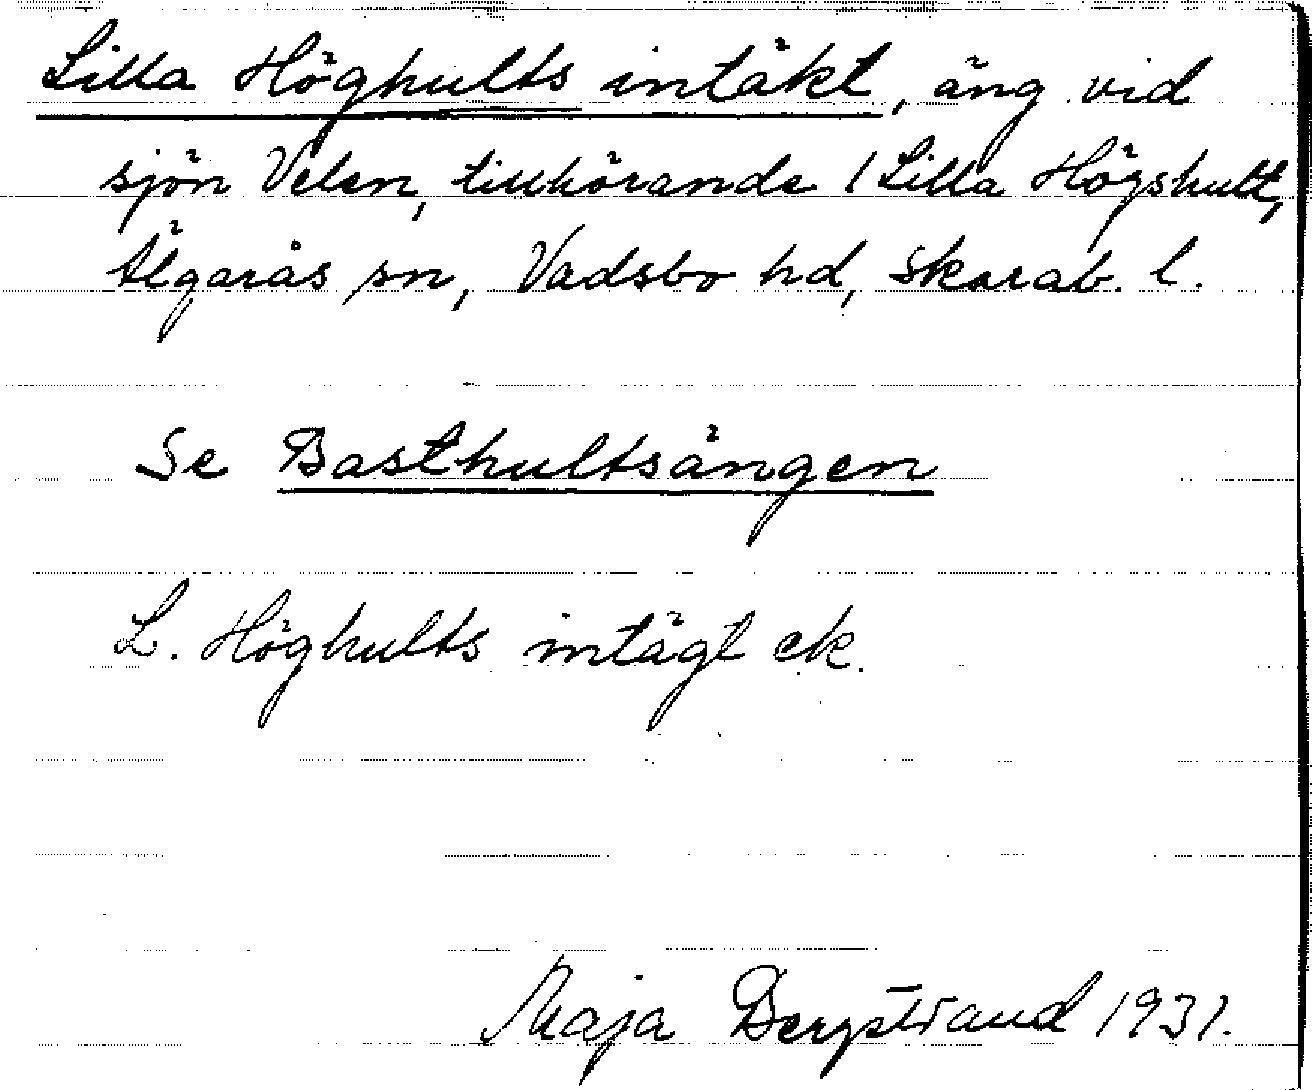 Lilla Höghults intäkt, äng vid
sjön Velen, tillhörande / Lilla Högshult,
Älgarås sn, Vadsbo hd, Skarab. l.
Se Basthultsängen
L. Höghults intägt ek.
Maja Bergstrand 1931.